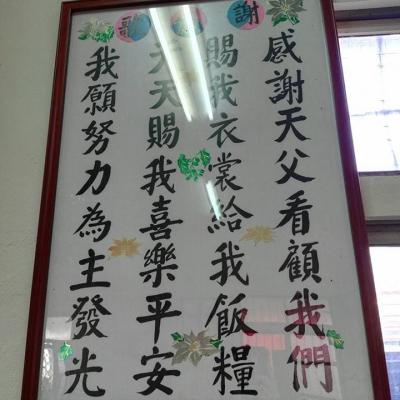 謝
歌
感謝天父看顧我們
賜我衣裳給我飯糧
天天賜我喜樂平安
我願努力為主發光